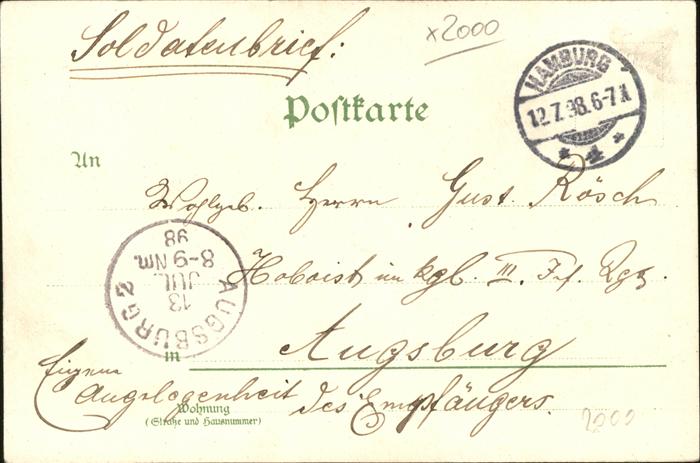 Soldatenbrief:
x2000
HAMBURG
12.7.98.6-7N
* 1 *
Postkarte
An
Wohlgeb. Herrn Gust. Rösch
AUGSBURG 2
13
JUL.
8-9 Nm.
98
Hoboist im kgl. III. Inf. Rgt.
in Augsburg
Eigene
Angelegenheit des Empfängers.
Wohnung
(Straße und Hausnummer)
2000